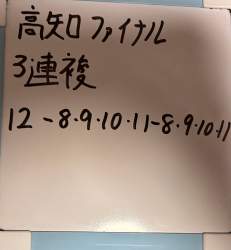 高知ファイナル
3連複
12-8・9・10・11-8・9・10・11